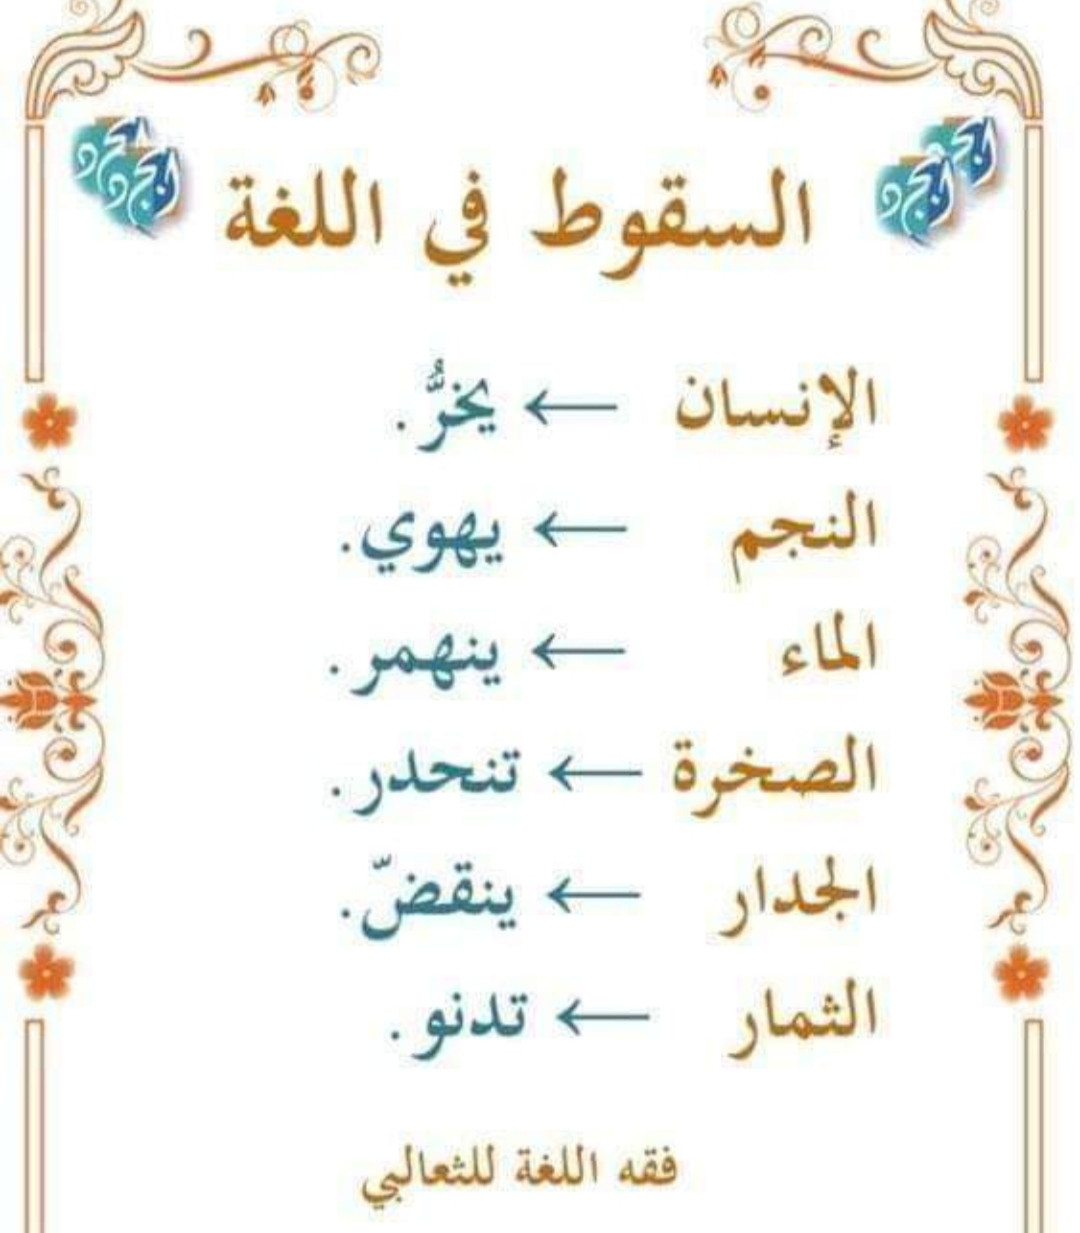 السقوط في اللغة
الإنسان ← يخرُّ.
النجم ← يهوي.
الماء ← ينهمر.
الصخرة ← تنحدر.
الجدار ← ينقضّ.
الثمار ← تدنو.
فقه اللغة للثعالبي